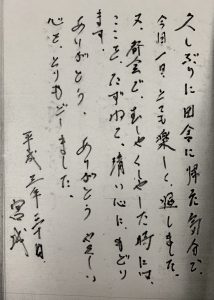 久しぶりに田舎に帰た気分で、
今日一日、とても楽しく過しました。
又、都会で、むしゃくしゃした時には、
ここを、たずねて、清い心にもどり
ます。
ありがとう ありがとう やさしい
心を、とりもどしました。
平成 年 月 日
宮城